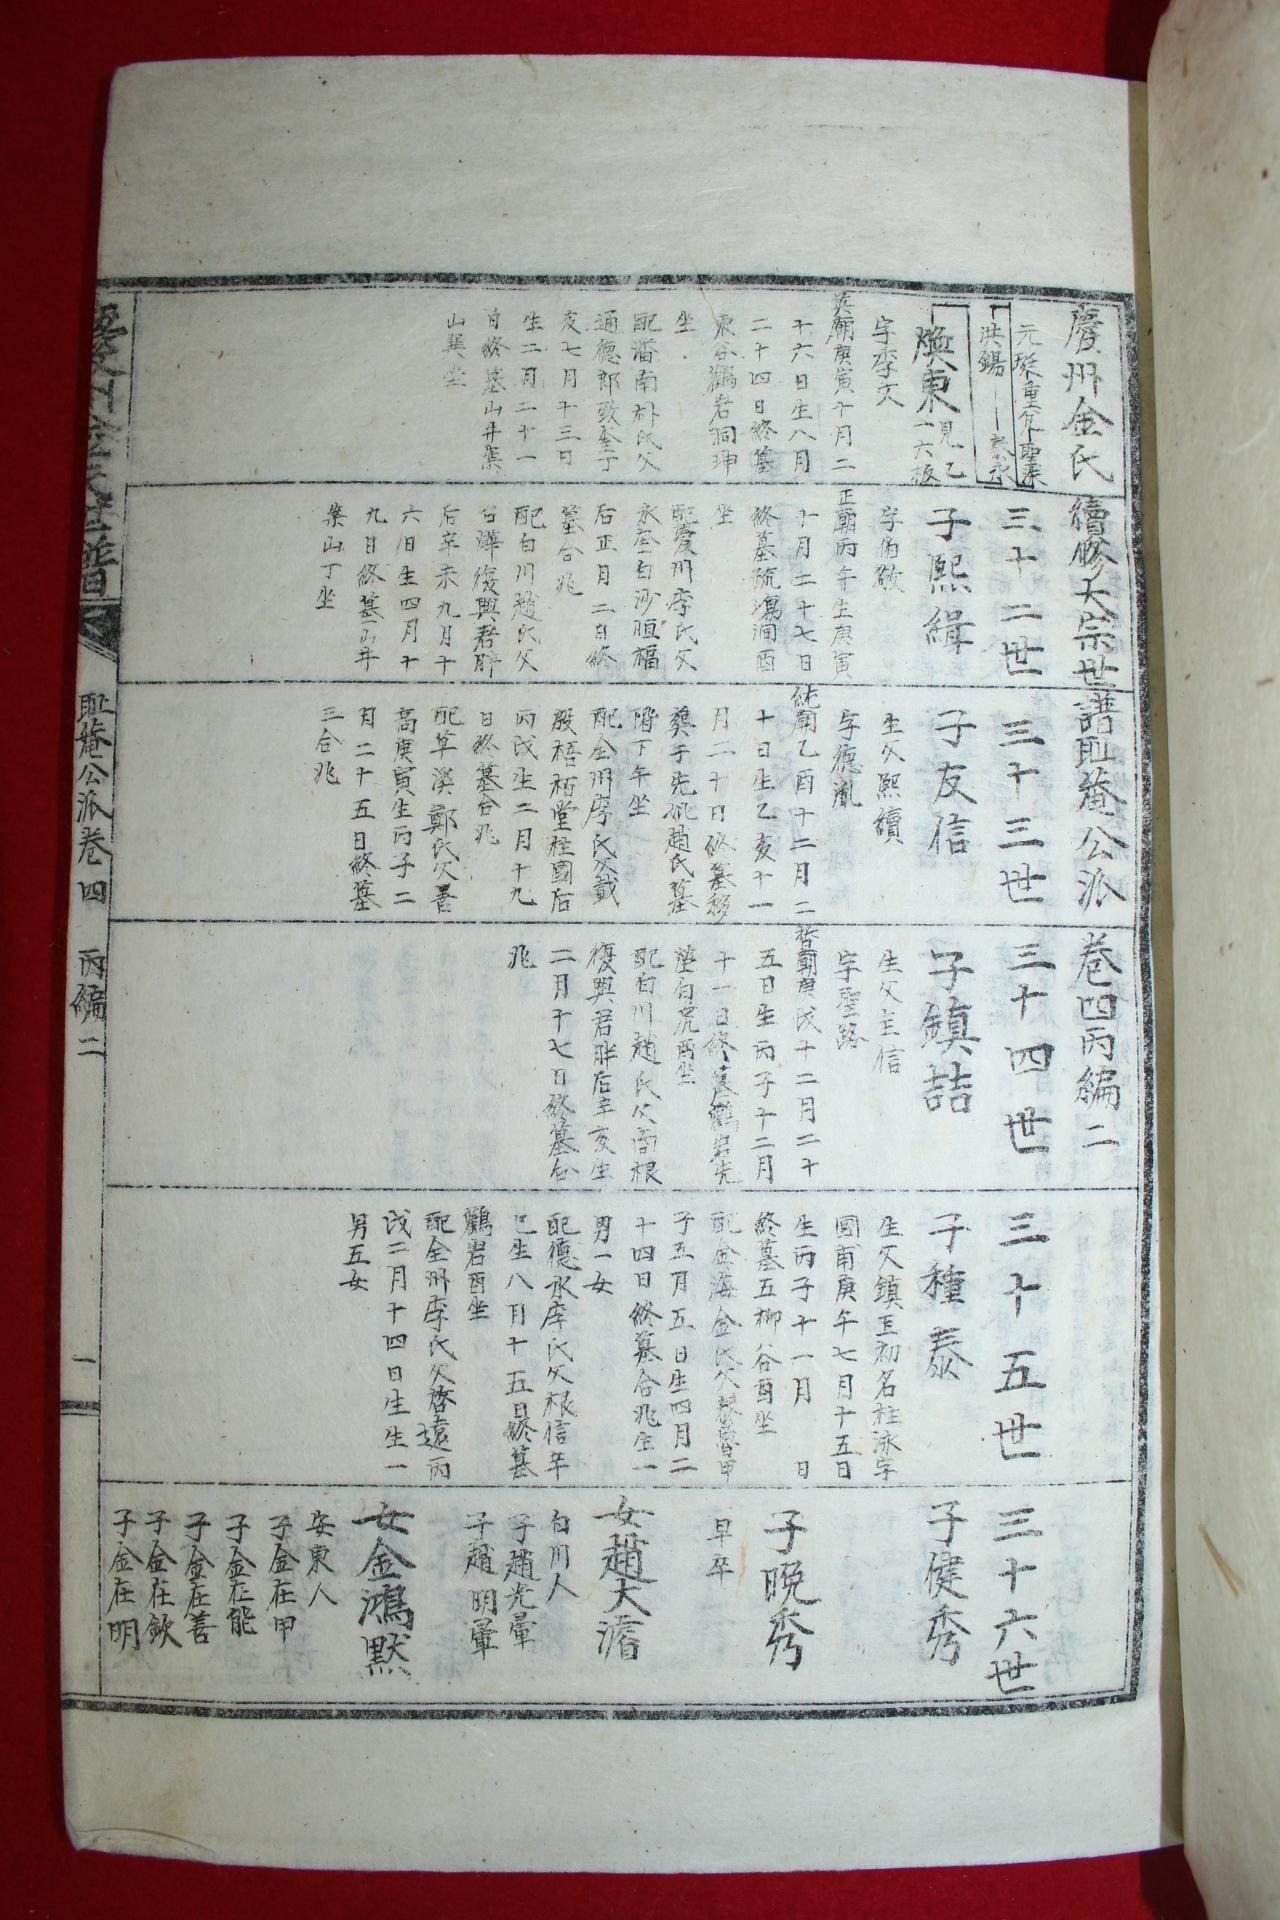 慶州金氏續修大宗世譜耻菴公派卷四丙編二
洪錫
煥東見乙一六板
字季文
英廟庚寅十月二
十六日生八月
二十四日終墓
東谷鶴岩洞坤
坐
配潘南朴氏父
通德郎致奎子
亥七月十三日
生二月二十一
日終墓山井集
山巽坐
三十二世
子熙緝
字伯敬
正廟丙午生庚寅
十月二十七日
終墓 洞酉
坐
配慶州李氏父
永奎白沙恒福
后正月二日終
墓合兆
配白川趙氏父
台濰復興君胖
后辛未九月十
六日生四月十
九日終墓山井
集山丁坐
三十三世
子友信
生父熙續
字德胤
純廟乙酉十二月二
十日生乙亥十一
月二十日終墓移
葬于先妣趙氏墓
階下午坐
配全州李氏父載
殷梧栢堂柱國后
丙戌生二月十九
日終墓合兆
配草溪鄭氏父
高庚寅生丙子二
月二十五日終墓
三合兆
三十四世
子鎮喆
生父主信
字聖路
哲廟庚戌十二月二十
五日生丙子十二月
十一日終墓鶴岩先
塋白虎酉坐
配白川趙氏父尚根
復興君胖后辛亥生
二月十七日終墓合
兆
三十五世
子種泰
生父鎮玉初名柱泳字
國甫庚午七月十五日
生丙子十一月 日
終墓五柳谷酉坐
配金海金氏父 甲
子五月五日生四月二
十四日終墓合兆生一
男一女
配德水李氏父根信辛
巳生八月十五日終墓
鶴岩酉坐
配全州李氏父啓遠丙
戌二月十四日生生一
男五女
三十六世
子健秀
子晚秀
早卒
女趙大濬
白川人
子趙光暈
子趙明暈
女金鴻默
安東人
子金在甲
子金在能
子金在善
子金在欽
子金在明
慶州金氏世譜
耻菴公派卷四 丙編二
一